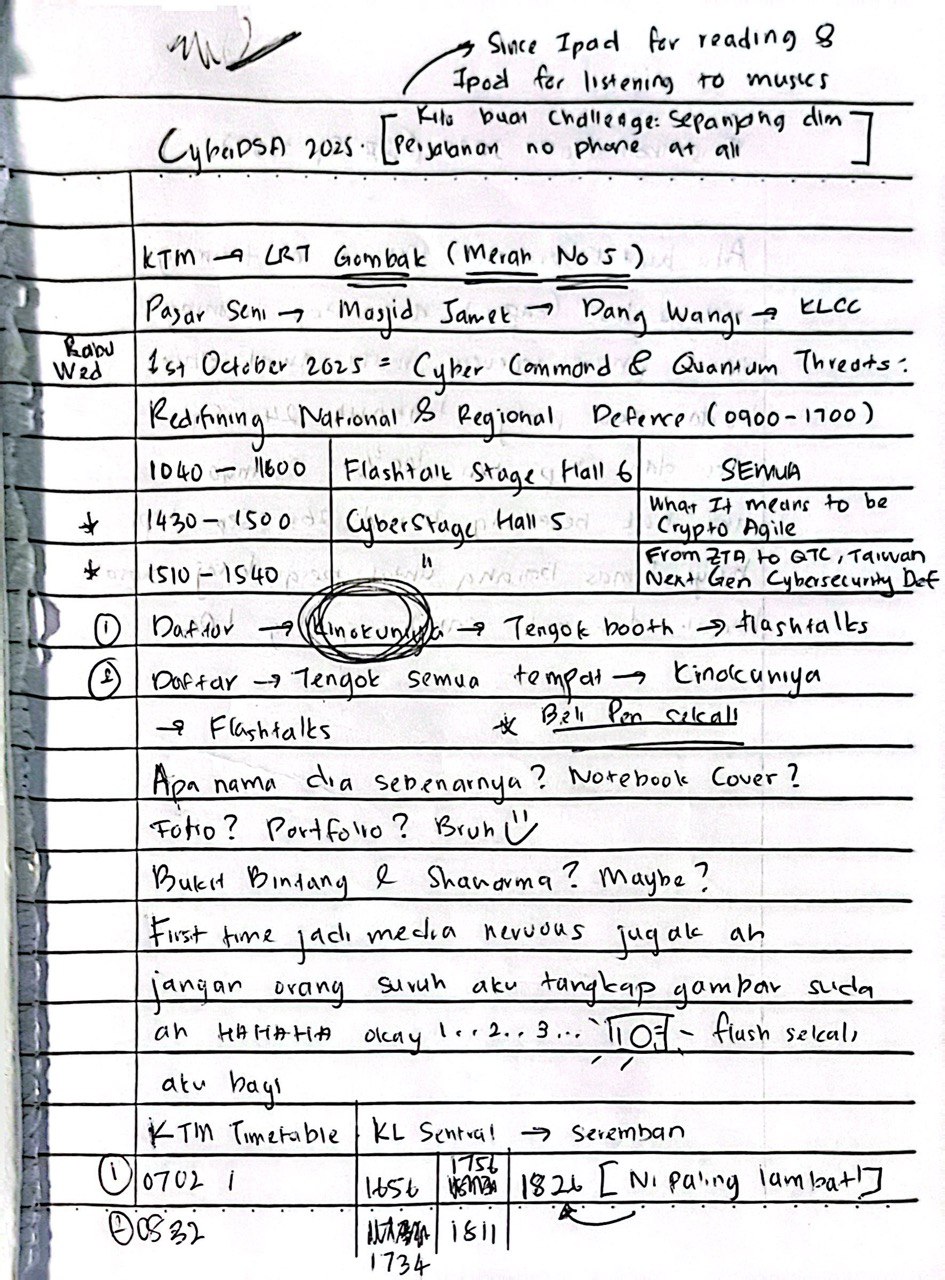 → Since Ipad for reading &
Ipod for listening to musics
CyberDSA 2025. [Kita buat challenge: sepanjang dlm
perjalanan no phone at all]
KTM → LRT Gombak (Merah No 5)
Pasar Seni → Masjid Jamek → Dang Wangi → KLCC
Rabu
Wed
1st October 2025 = Cyber Command & Quantum Threats:
Redifining National & Regional Defence (0900-1700)
1040 - 1600 Flashtalk Stage Hall 6 SEMUA
* 1430 - 1500 CyberStage Hall 5 What It means to be
Crypto Agile
* 1510 - 1540 " From ZTA to QTC, Taiwan
Next Gen Cybersecurity Def
① Daftar → Kinokuniya → Tengok booth → flashtalks
② Daftar → Tengok semua tempat → Kinokuniya
→ Flashtalks * Beli Pen sekali
Apa nama dia sebenarnya? Notebook Cover?
Folio? Portfolio? Bruh
Bukit Bintang & Shawarma? Maybe?
First time jadi media nervous jugak ah
jangan orang suruh aku tangkap gambar suda
ah HAHAHA okay 1..2..3... flash sekali
aku bagi
KTM Timetable KL Sentral → Seremban
① 0702 1656 1756 1826 [Ni paling lambat!]
② 0832 1734 1811